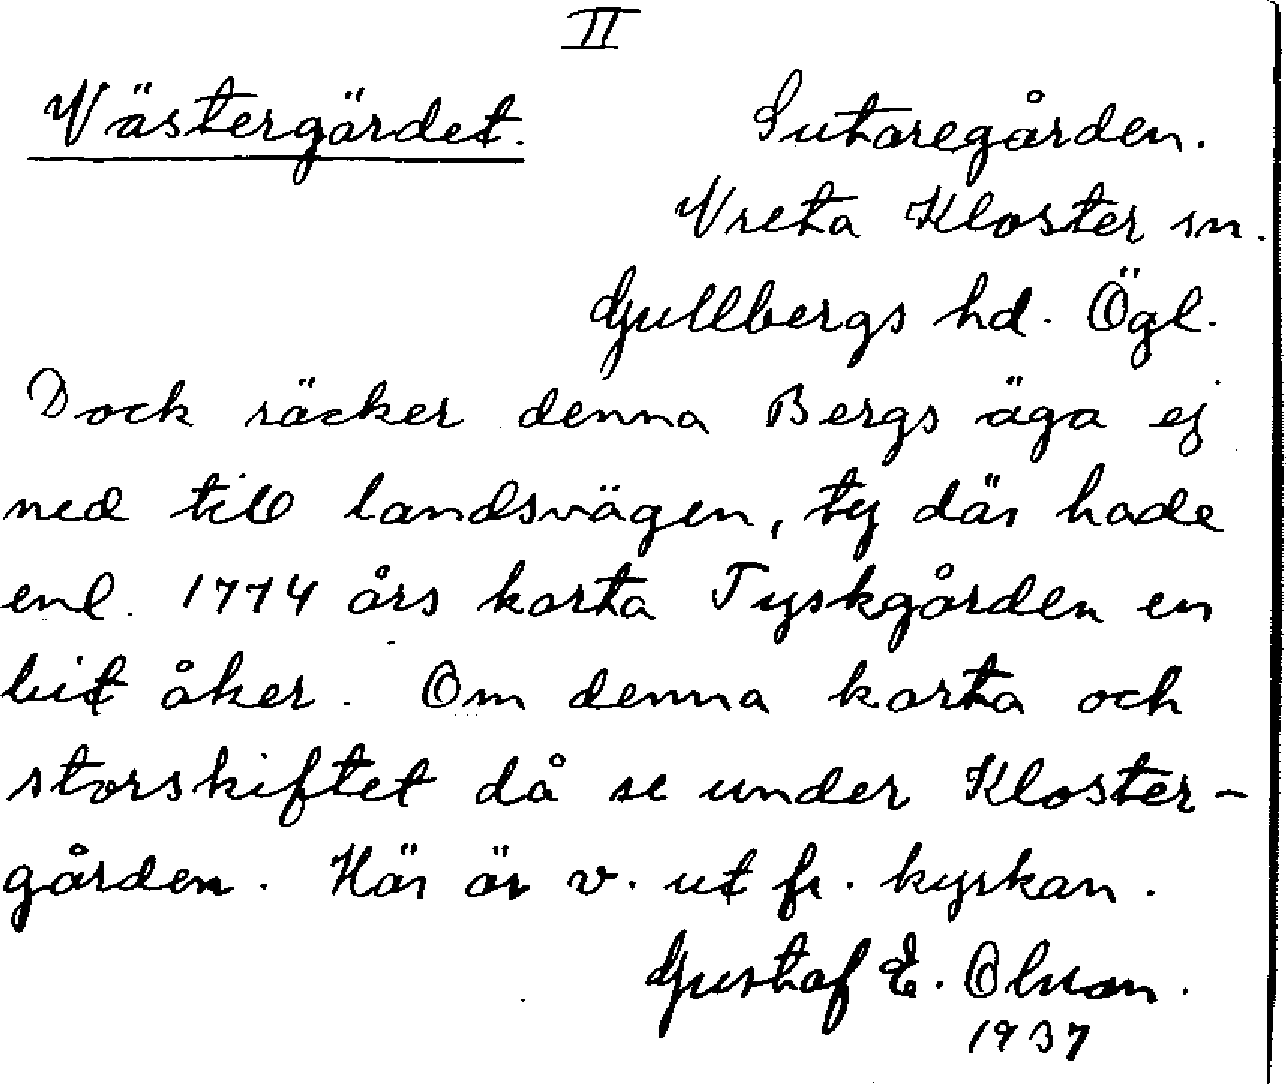 II
Västergärdet. Sutaregården.
Vreta Kloster sn.
Gullbergs hd. Ögl.
Dock räcker denna Bergs äga ej
ned till landsvägen, ty där hade
enl. 1774 års karta Tyskgården en
bit åker. Om denna karta och
storskiftet då se under Kloster-
gården. Här är v. ut fr. kyrkan.
Gustaf E. Olsson.
1937